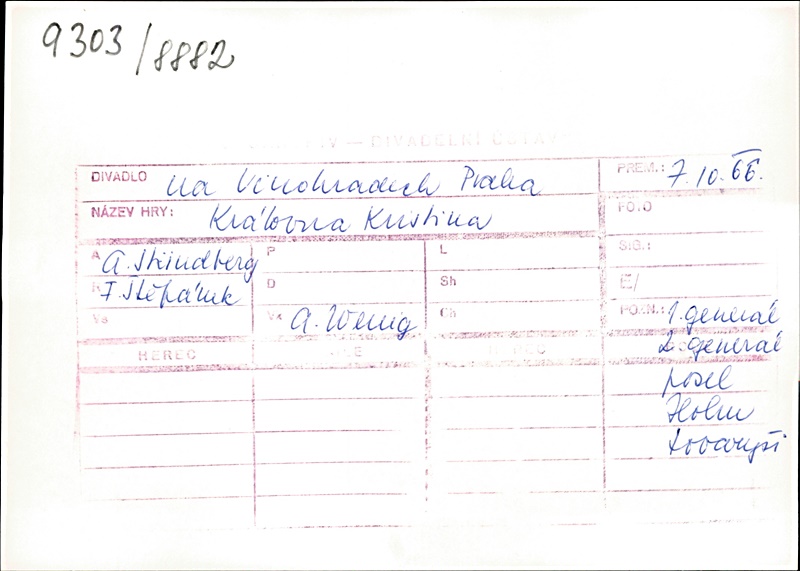 9303/8882
DIVADELNÍ ÚSTAV
DIVADLO na Vinohradech Praha PREM.: 7.10.66.
NÁZEV HRY: Královna Kristina FOTO
A A. Strindberg P L SIG.:
R F. Štěpánek D Sh E/
Vs Vk A. Wenig Ch POZN.: 1. generál
HEREC HEREC 2. generál
posel
Holm
tovaryši